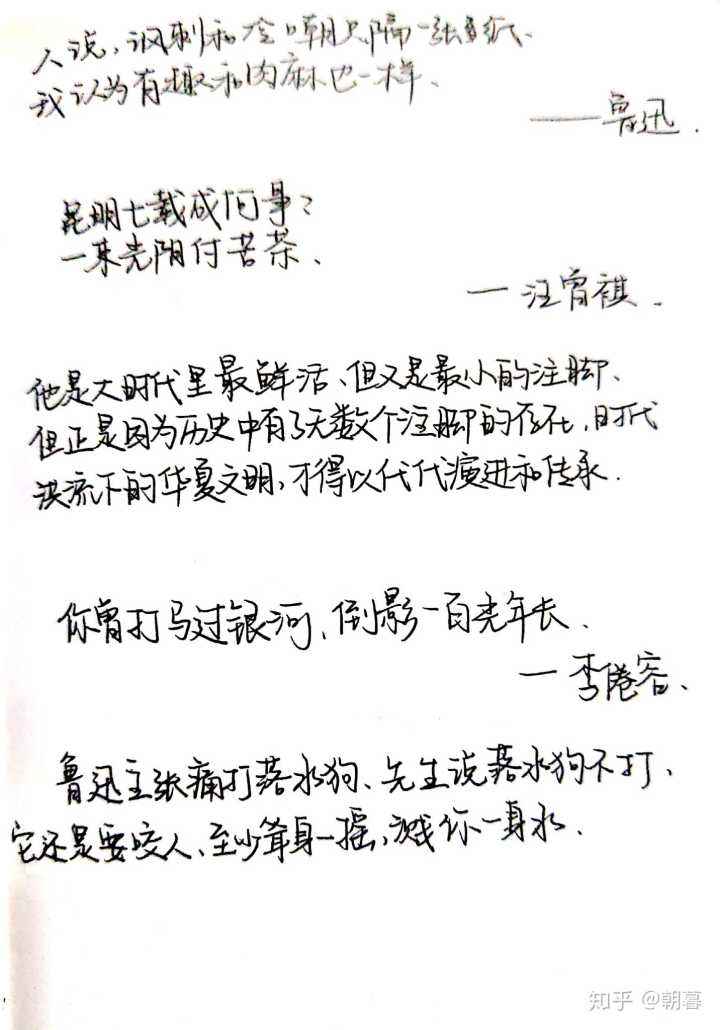 人说,讽刺和冷嘲只隔一张纸、
我认为有趣和肉麻也一样、
——鲁迅.
昆明七载成何事?
一束光阴付苦茶、
—汪曾祺.
他是大时代里最鲜活、但又是最小的注脚、
但正是因为历史中有了无数个注脚的存在,时代
洪流下的华夏文明,才得以代代演进和传承.
你曾打马过银河,倒影一百光年长、
—李倦容、
鲁迅主张痛打落水狗、先生说落水狗不打、
它还是要咬人、至少耸身一摇,溅你一身水.
知乎 @朝暮